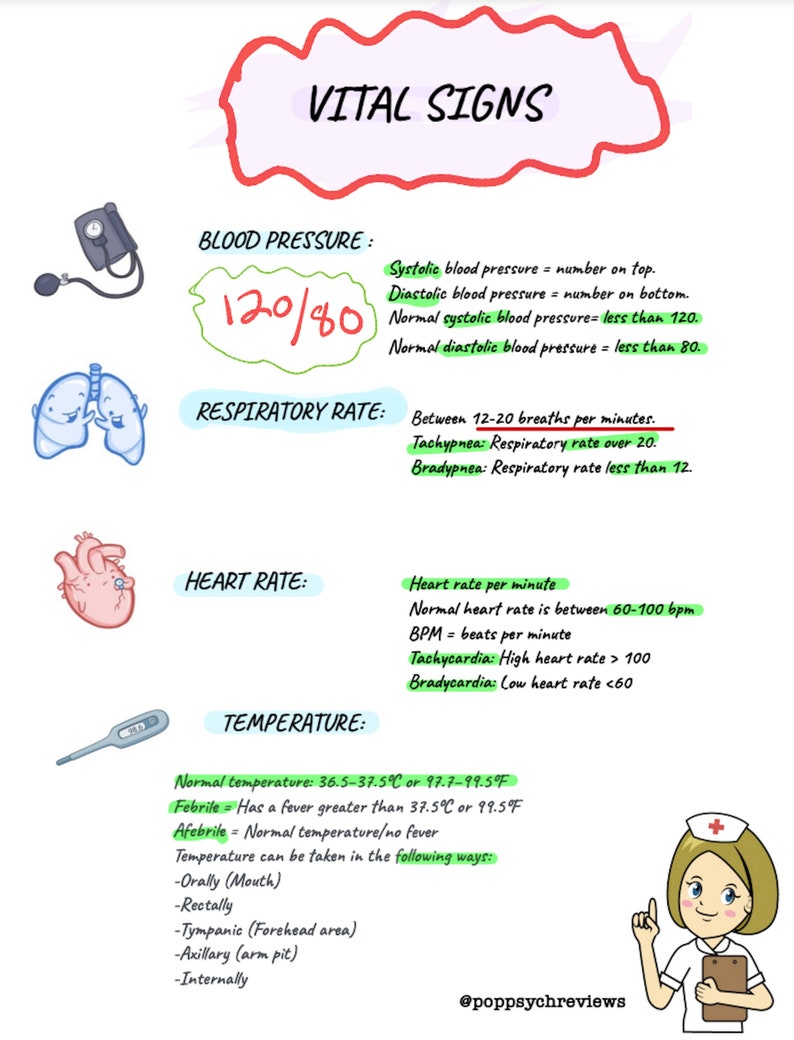 VITAL SIGNS
BLOOD PRESSURE :
120/80
Systolic blood pressure = number on top.
Diastolic blood pressure = number on bottom.
Normal systolic blood pressure= less than 120.
Normal diastolic blood pressure = less than 80.
RESPIRATORY RATE:
Between 12-20 breaths per minutes.
Tachypnea: Respiratory rate over 20.
Bradypnea: Respiratory rate less than 12.
HEART RATE:
Heart rate per minute
Normal heart rate is between 60-100 bpm
BPM = beats per minute
Tachycardia: High heart rate > 100
Bradycardia: Low heart rate <60
98.6
TEMPERATURE:
Normal temperature: 36.5–37.5°C or 97.7–99.5°F
Febrile = Has a fever greater than 37.5°C or 99.5°F
Afebrile = Normal temperature/no fever
Temperature can be taken in the following ways:
-Orally (Mouth)
-Rectally
-Tympanic (Forehead area)
-Axillary (arm pit)
-Internally
@poppsychreviews